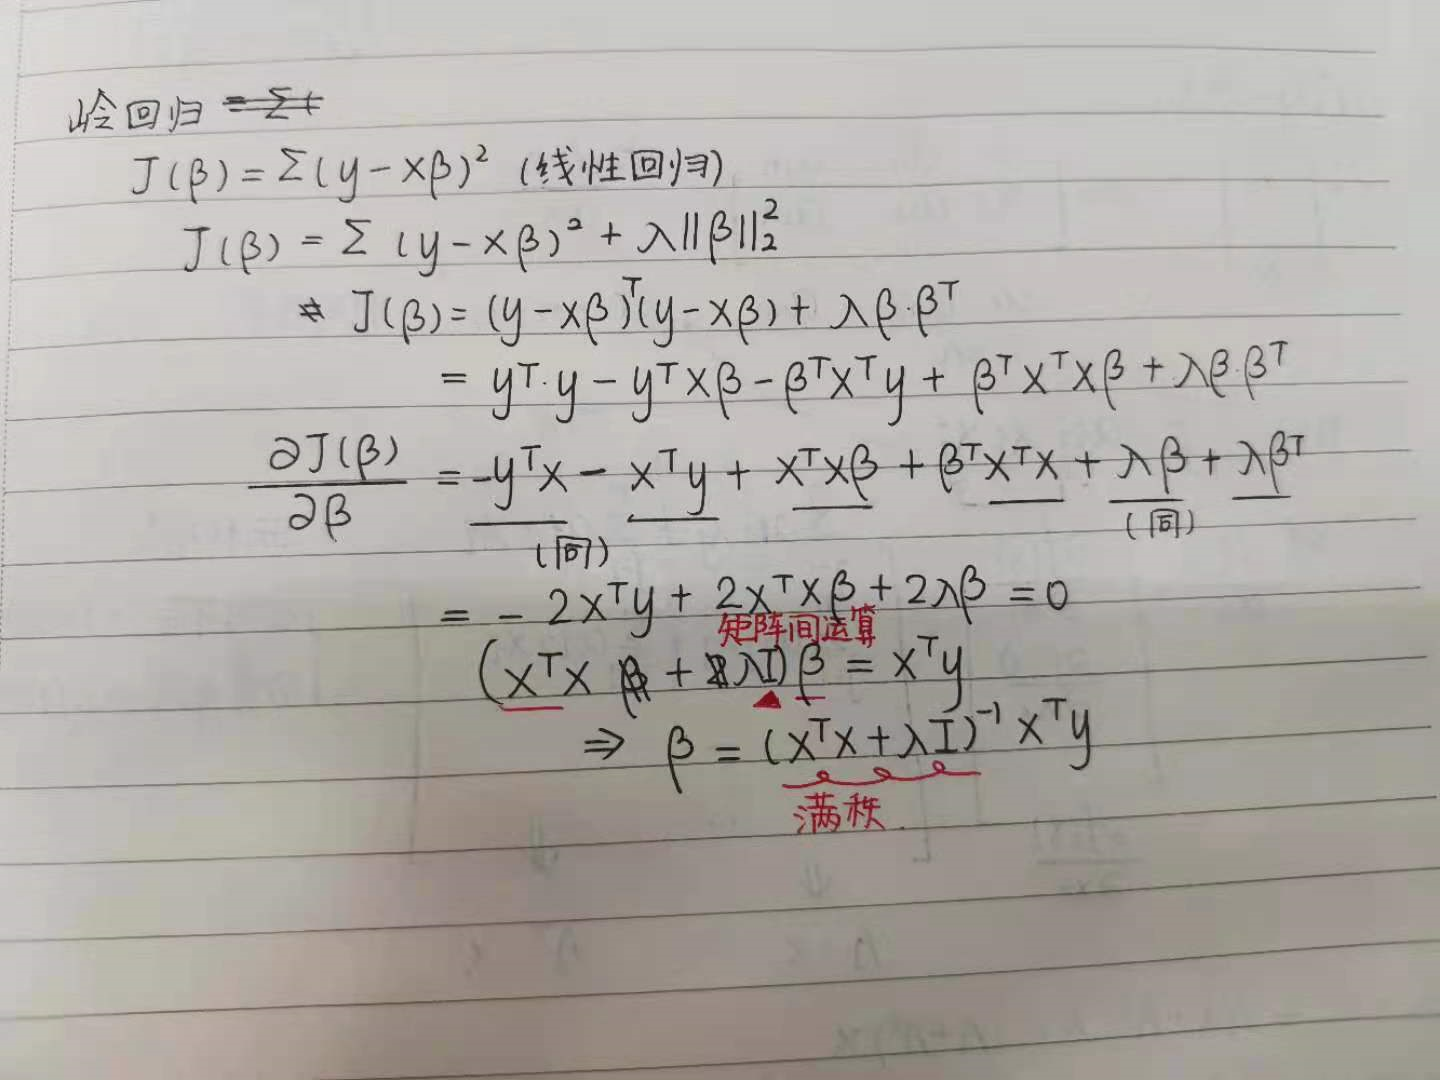 岭回归
J(β) = Σ(y-xβ)² (线性回归)
J(β) = Σ (y-xβ)² + λ||β||₂²
J(β) = (y-xβ)ᵀ(y-xβ) + λβ·βᵀ
= yᵀ·y - yᵀxβ - βᵀxᵀy + βᵀxᵀxβ + λβ·βᵀ
∂J(β)/∂β = -yᵀx - xᵀy + xᵀxβ + βᵀxᵀx + λβ + λβᵀ
(同) (同)
= - 2xᵀy + 2xᵀxβ + 2λβ = 0
矩阵间运算
(xᵀx + λI)β = xᵀy
⇒ β = (xᵀx + λI)⁻¹ xᵀy
满秩